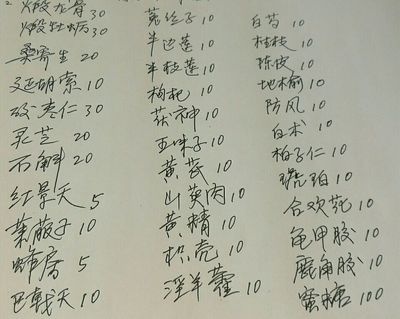 煅龙骨 30
煅牡蛎 30
桑寄生 20
延胡索 10
酸枣仁 30
灵芝 20
石斛 20
红景天 5
蕤蕤子 10
蜂房 5
巴戟天 10
菟丝子 10
半边莲 10
半枝莲 10
枸杞 10
茯神 10
五味子 10
黄芪 10
山萸肉 10
黄精 10
枳壳 10
淫羊藿 10
白芍 10
桂枝 10
陈皮 10
地榆 10
防风 10
白术 10
柏子仁 10
琥珀 10
合欢花 10
龟甲胶 10
鹿角胶 10
蜜糖 100